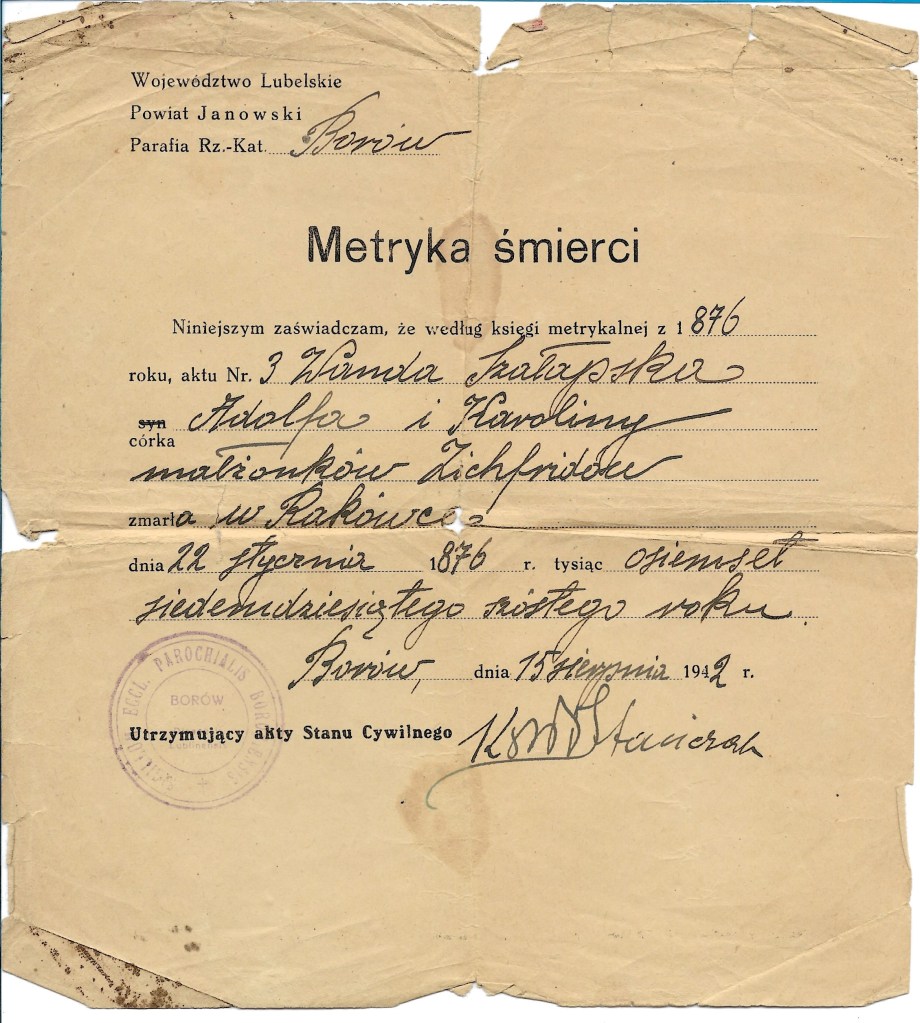 Województwo Lubelskie
Powiat Janowski
Parafia Rz.-Kat. Borów
Metryka śmierci
Niniejszym zaświadczam, że według księgi metrykalnej z 1876
roku, aktu Nr. 3 Wanda Szałapska
syn
Adolfa i Karoliny
córka
małżonków Zichfridów
zmarła w Rakówce
dnia 22 stycznia 1876 r. tysiąc osiemset
siedemdziesiątego szóstego roku
Borów, dnia 15 sierpnia 1942 r.
SIGILLUM ECCL. PAROCHIALIS
BORÓW
Utrzymujący akty Stanu Cywilnego
Stańczak